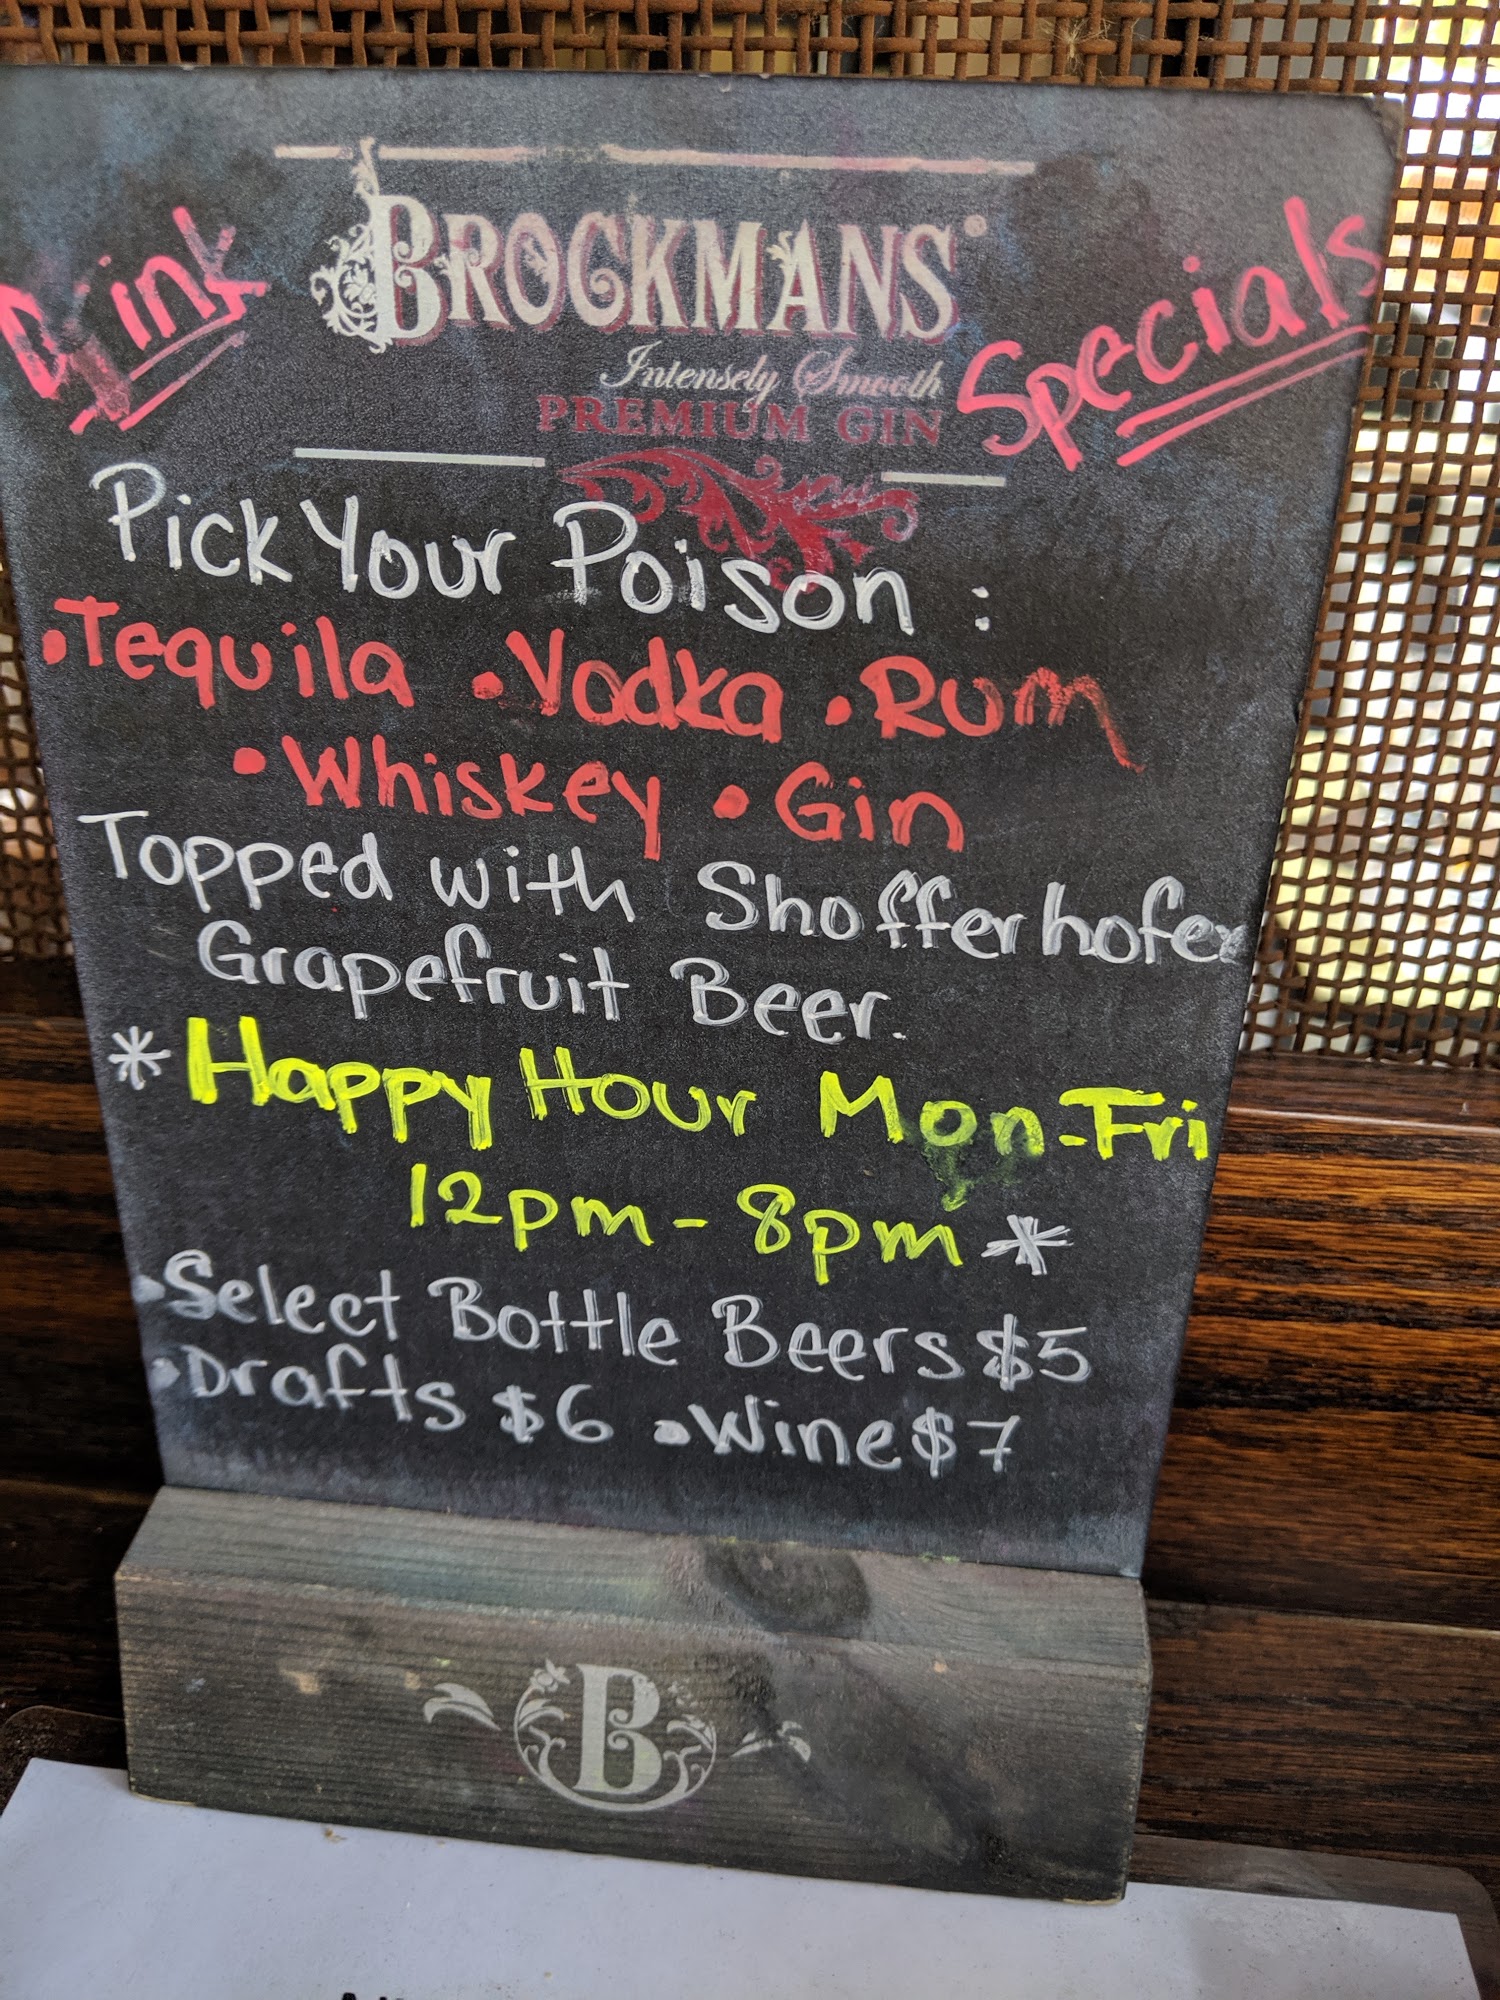 BROCKMANS
Drink Specials
Intensely Smooth
PREMIUM GIN
Pick Your Poison :
•Tequila •Vodka •Rum
•Whiskey •Gin
Topped with Shofferhofer
Grapefruit Beer.
*Happy Hour Mon-Fri
12pm - 8pm *
•Select Bottle Beers $5
•Drafts $6 •Wine $7
B